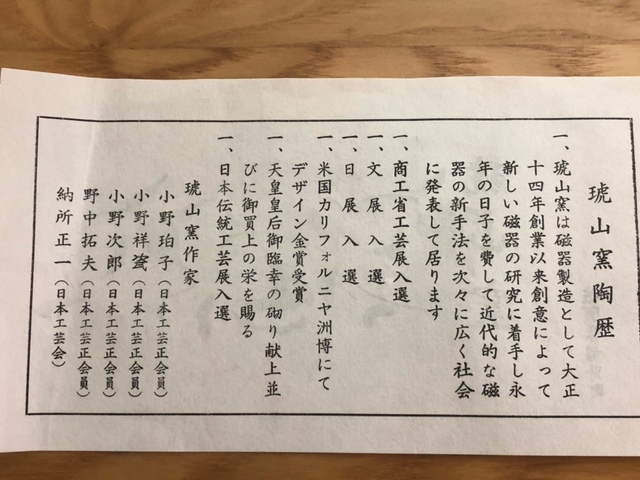 琥山窯陶歴
一、琥山窯は磁器製造として大正
十四年創業以来創意によって
新しい磁器の研究に着手し永
年の日子を費して近代的な磁
器の新手法を次々に広く社会
に発表して居ります
一、商工省工芸展入選
一、文展入選
一、日展入選
一、米国カリフォルニヤ洲博にて
デザイン金賞受賞
一、天皇皇后御臨幸の砌り献上並
びに御買上の栄を賜る
一、日本伝統工芸展入選
琥山窯作家
小野珀子(日本工芸正会員)
小野祥瓷(日本工芸正会員)
小野次郎(日本工芸正会員)
野中拓夫(日本工芸正会員)
納所正一(日本工芸会)